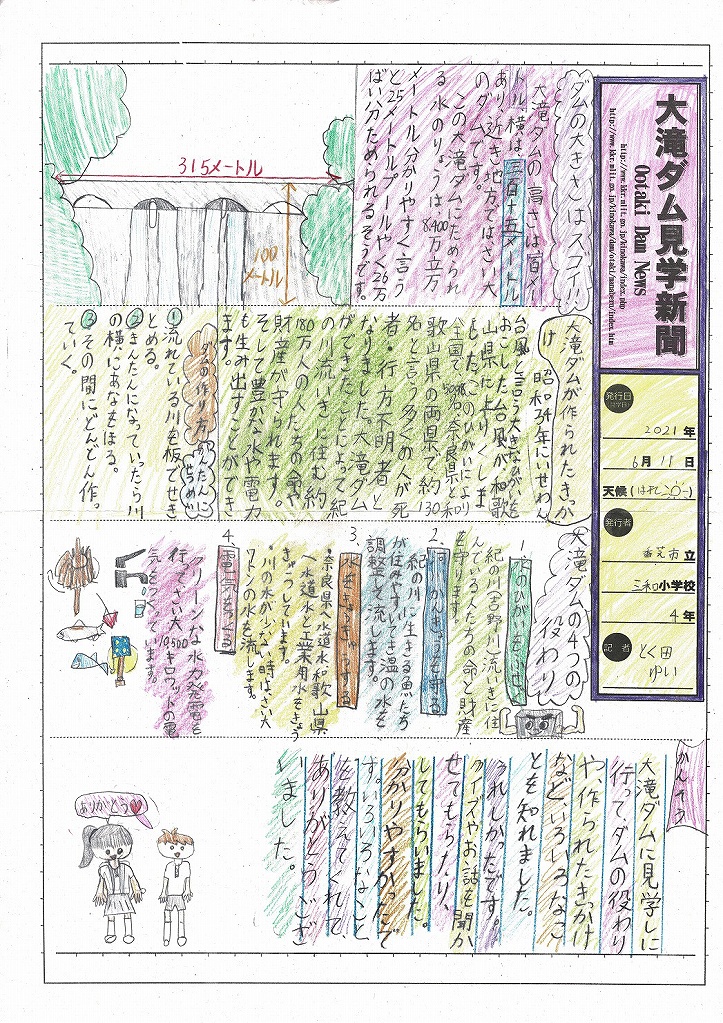 大滝ダム見学新聞
Ootaki Dam News
http://www.kkr.mlit.go.jp/kinokawa/index.php
発行日
2021年
6月11日
天候(はれ)
発行者
香芝市立
三和小学校
4年
記者
とく田
ゆい
ダムの大きさはスゴイ!!
大滝ダムの高さは百メー
トル、横は、三百十五メートル
あり、近き地方ではさい大
のダムです。
この大滝ダムにためられ
る水のりょうは、8,400万立方
メートル分かりやすく言う
と25メートルプールやく26万
ばい分ためられるそうです。
315メートル
100
メートル
大滝ダムが作られたきっか
け
昭和34年にいせわん
台風と言う大きなひがいを
おこした台風が、和歌
山県に上りくしま
した。このひがいにより
全国で5098名、奈良県と和
歌山県の両県で約130
名と言う多くの人が死
者・行方不明者と
なりました。大滝ダム
ができたことによって紀
の川流いきに住む約
180万人の人たちの命や
財産が守られます。
そして豊かな水や電力
も生み出すことができ
ます。
ダムの作り方
かんたんに
せつめい
①流れている川を板でせき
とめる。
②かんたんになっていったら川
の横にあなをほる。
③その間にどんどん作っ
ていく。
大滝ダムの4つの
役わり
1、水のひがいをふせぐ
紀の川(吉野川)流いきに住
んでいる人たちの命と財産
を守ります。
2、川のかんきょうを守る
紀の川に生きる魚たち
が住みやすいてき温の水を
調整して流します。
3、水をきょうきゅうする
・奈良県へ水道水、和歌山県
へ水道水と工業用水をきょう
きゅうしています。
・川の水が少ない時は、さい大
7トンの水を流します。
4、電気をつくる
クリーンな水力発電を
行って、さい大10500キロワットの電
気をつくっています。
かんそう
大滝ダムに見学しに
行って、ダムの役わり
や、作られたきっかけ
など、いろいろなこ
とを知れました。
うれしかったです。
クイズやお話を聞か
せてもらったり、
してもらいました。
分かりやすかったで
す。いろいろなこと
を教えてくれて、
ありがとうござ
いました。
ありがとう